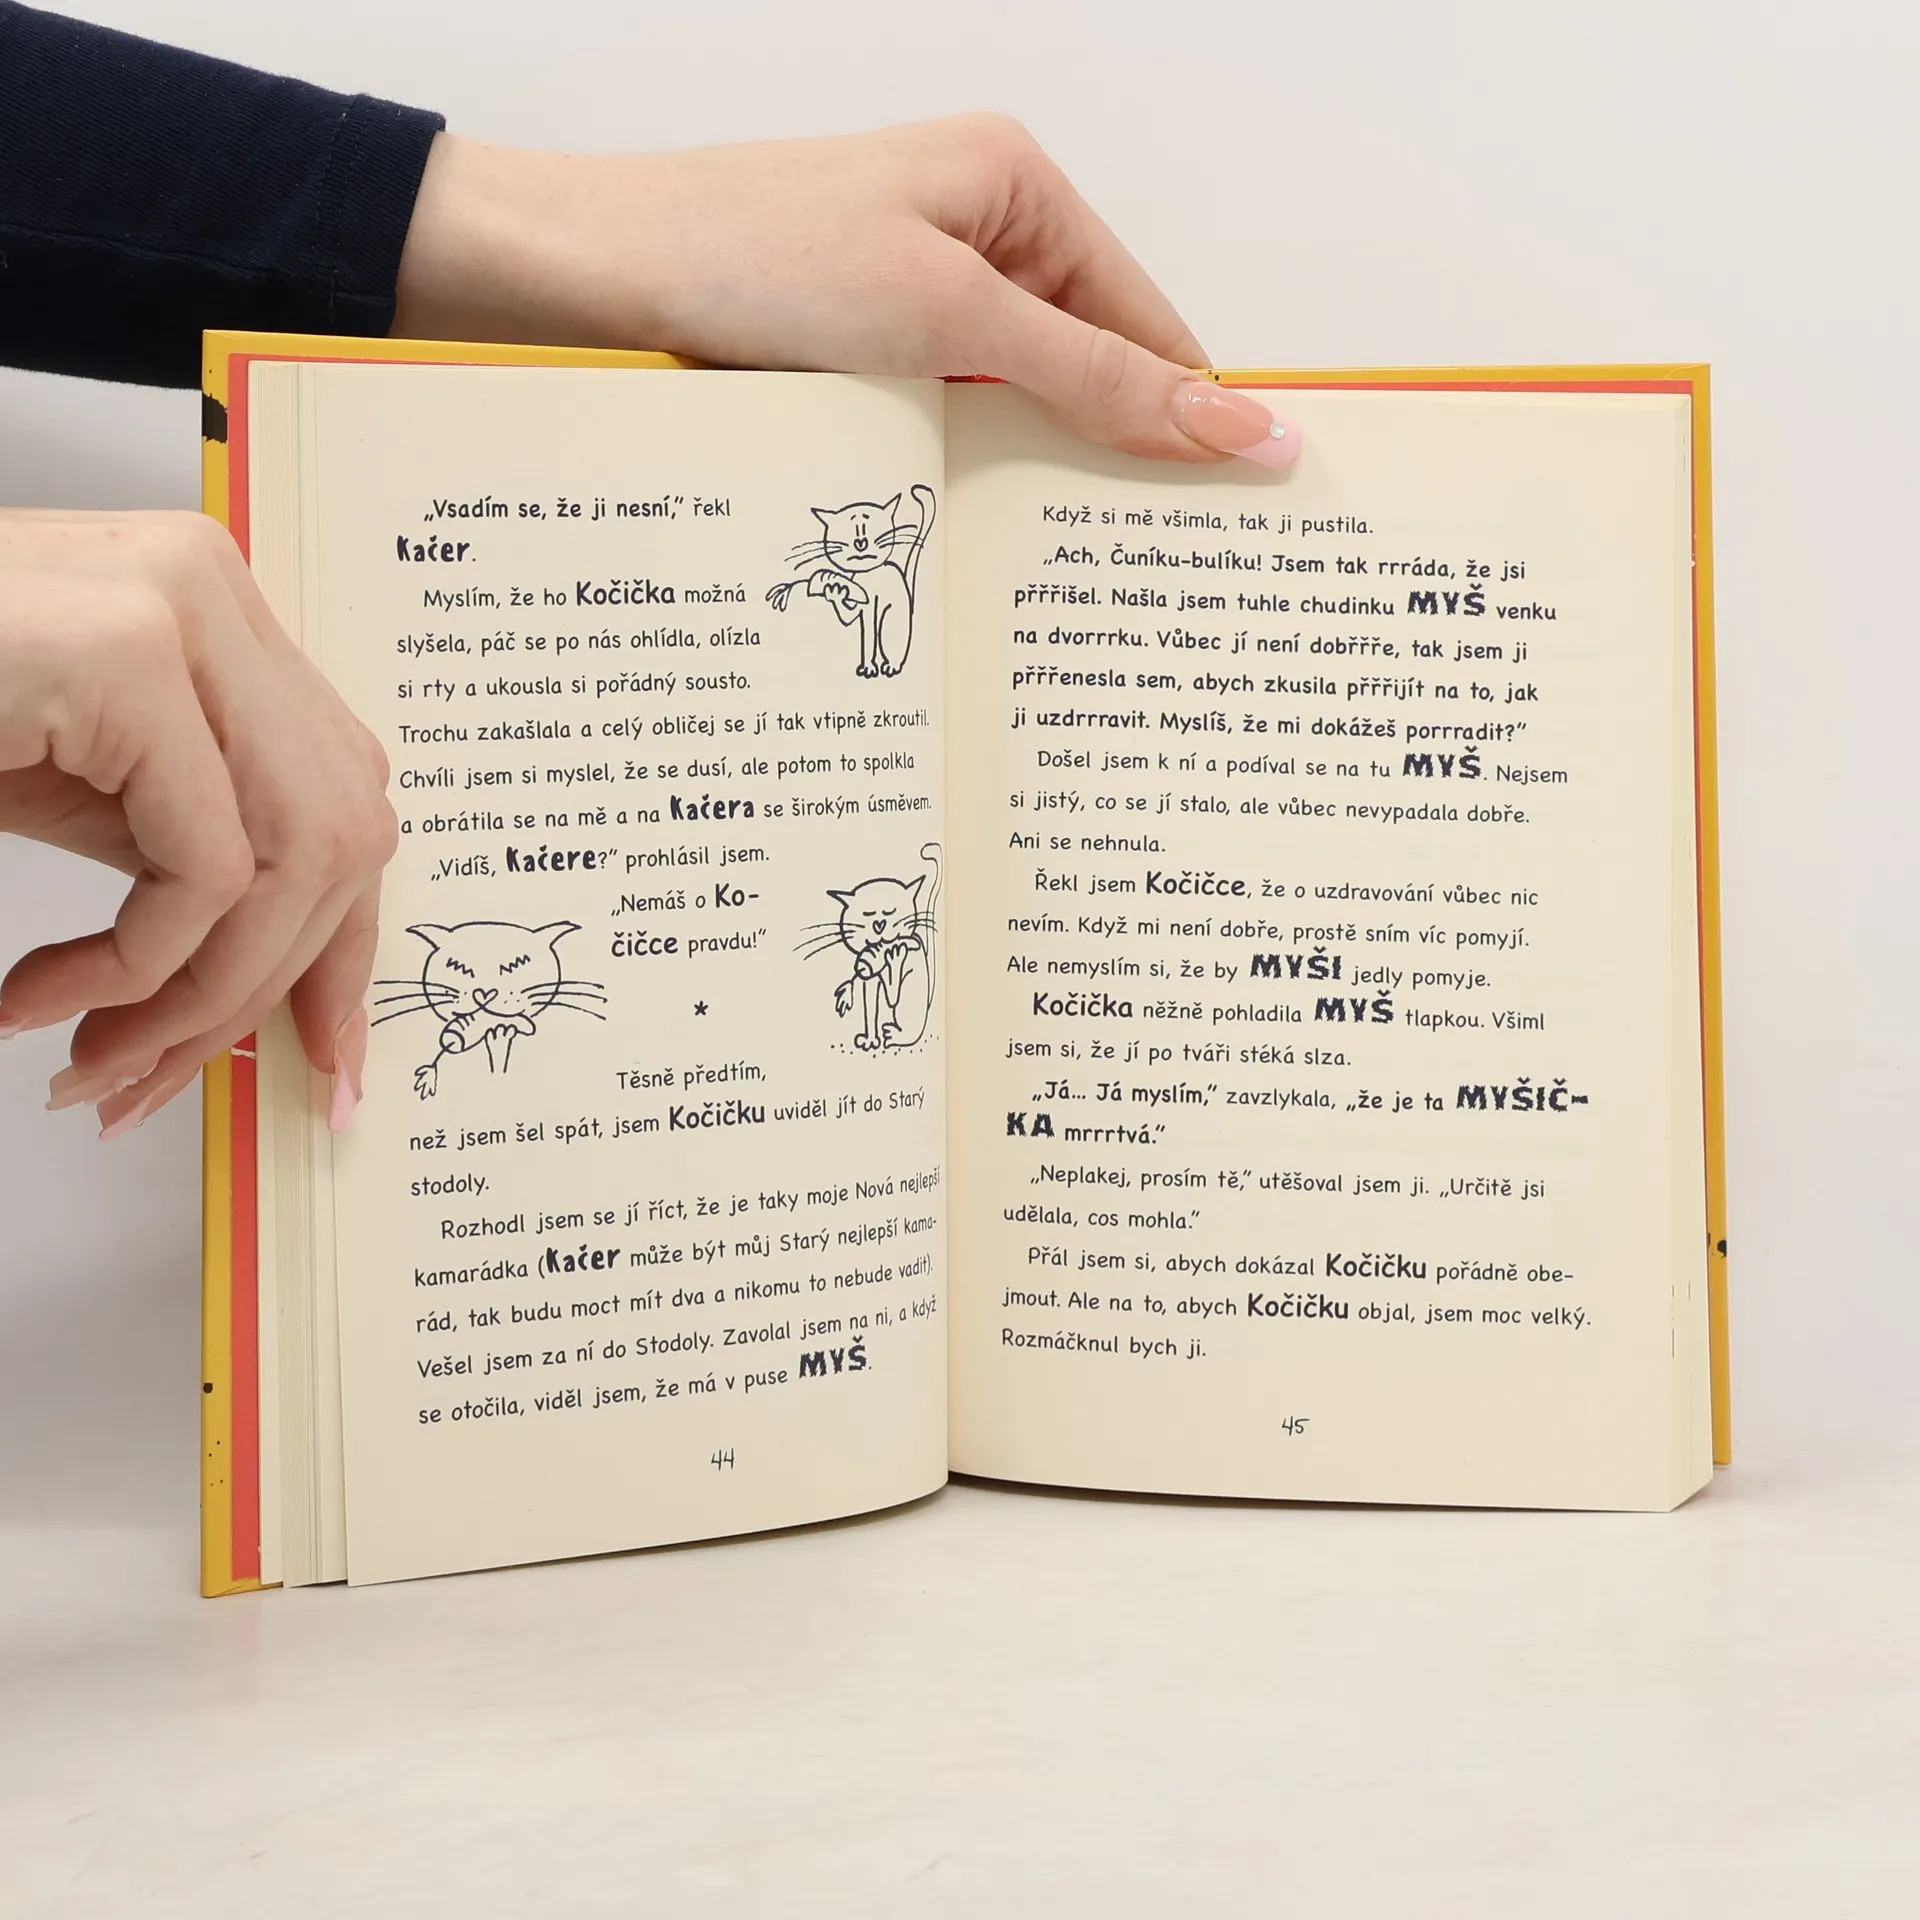 „Vsadím se, že ji nesní,“ řekl
Kačer.
Myslím, že ho Kočička možná
slyšela, páč se po nás ohlídla, olízla
si rty a ukousla si pořádný sousto.
Trochu zakašlala a celý obličej se jí tak vtipně zkroutil.
Chvíli jsem si myslel, že se dusí, ale potom to spolkla
a obrátila se na mě a na Kačera se širokým úsměvem.
„Vidíš, Kačere?“ prohlásil jsem.
„Nemáš o Ko-
čičce pravdu!“
*
Těsně předtím,
než jsem šel spát, jsem Kočičku uviděl jít do Starý
stodoly.
Rozhodl jsem se jí říct, že je taky moje Nová nejlepší
kamarádka (Kačer může být můj Starý nejlepší kama-
rád, tak budu moct mít dva a nikomu to nebude vadit).
Vešel jsem za ní do Stodoly. Zavolal jsem na ni, a když
se otočila, viděl jsem, že má v puse MYŠ.
44
Když si mě všimla, tak ji pustila.
„Ach, Čuníku-bulíku! Jsem tak rrráda, že jsi
přřřišel. Našla jsem tuhle chudinku MYŠ venku
na dvorrrku. Vůbec jí není dobřřře, tak jsem ji
přřřenesla sem, abych zkusila přřřijít na to, jak
ji uzdrrravit. Myslíš, že mi dokážeš porrradit?“
Došel jsem k ní a podíval se na tu MYŠ. Nejsem
si jistý, co se jí stalo, ale vůbec nevypadala dobře.
Ani se nehnula.
Řekl jsem Kočičce, že o uzdravování vůbec nic
nevím. Když mi není dobře, prostě sním víc pomyjí.
Ale nemyslím si, že by MYŠI jedly pomyje.
Kočička něžně pohladila MYŠ tlapkou. Všiml
jsem si, že jí po tváři stéká slza.
„Já... Já myslím,“ zavzlykala, „že je ta MYŠIČ-
KA mrrrtvá.“
„Neplakej, prosím tě,“ utěšoval jsem ji. „Určitě jsi
udělala, cos mohla.“
Přál jsem si, abych dokázal Kočičku pořádně obe-
jmout. Ale na to, abych Kočičku objal, jsem moc velký.
Rozmáčknul bych ji.
45